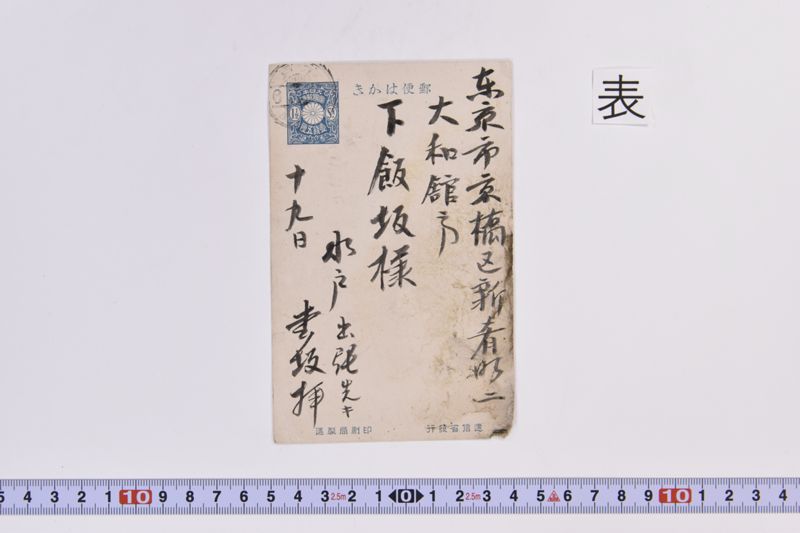 表
郵便はかき
東京市京橋区新肴町二
大和館方
下飯坂様
水戸出張先キ
拝
十九日
逓信省発行
印刷局製造
5 4 3 2 1 10 9 8 7 6 5 4 3 2.5m 2 1 0 1 2 2.5m 3 4 5 6 7 8 9 10 1 2 3 4